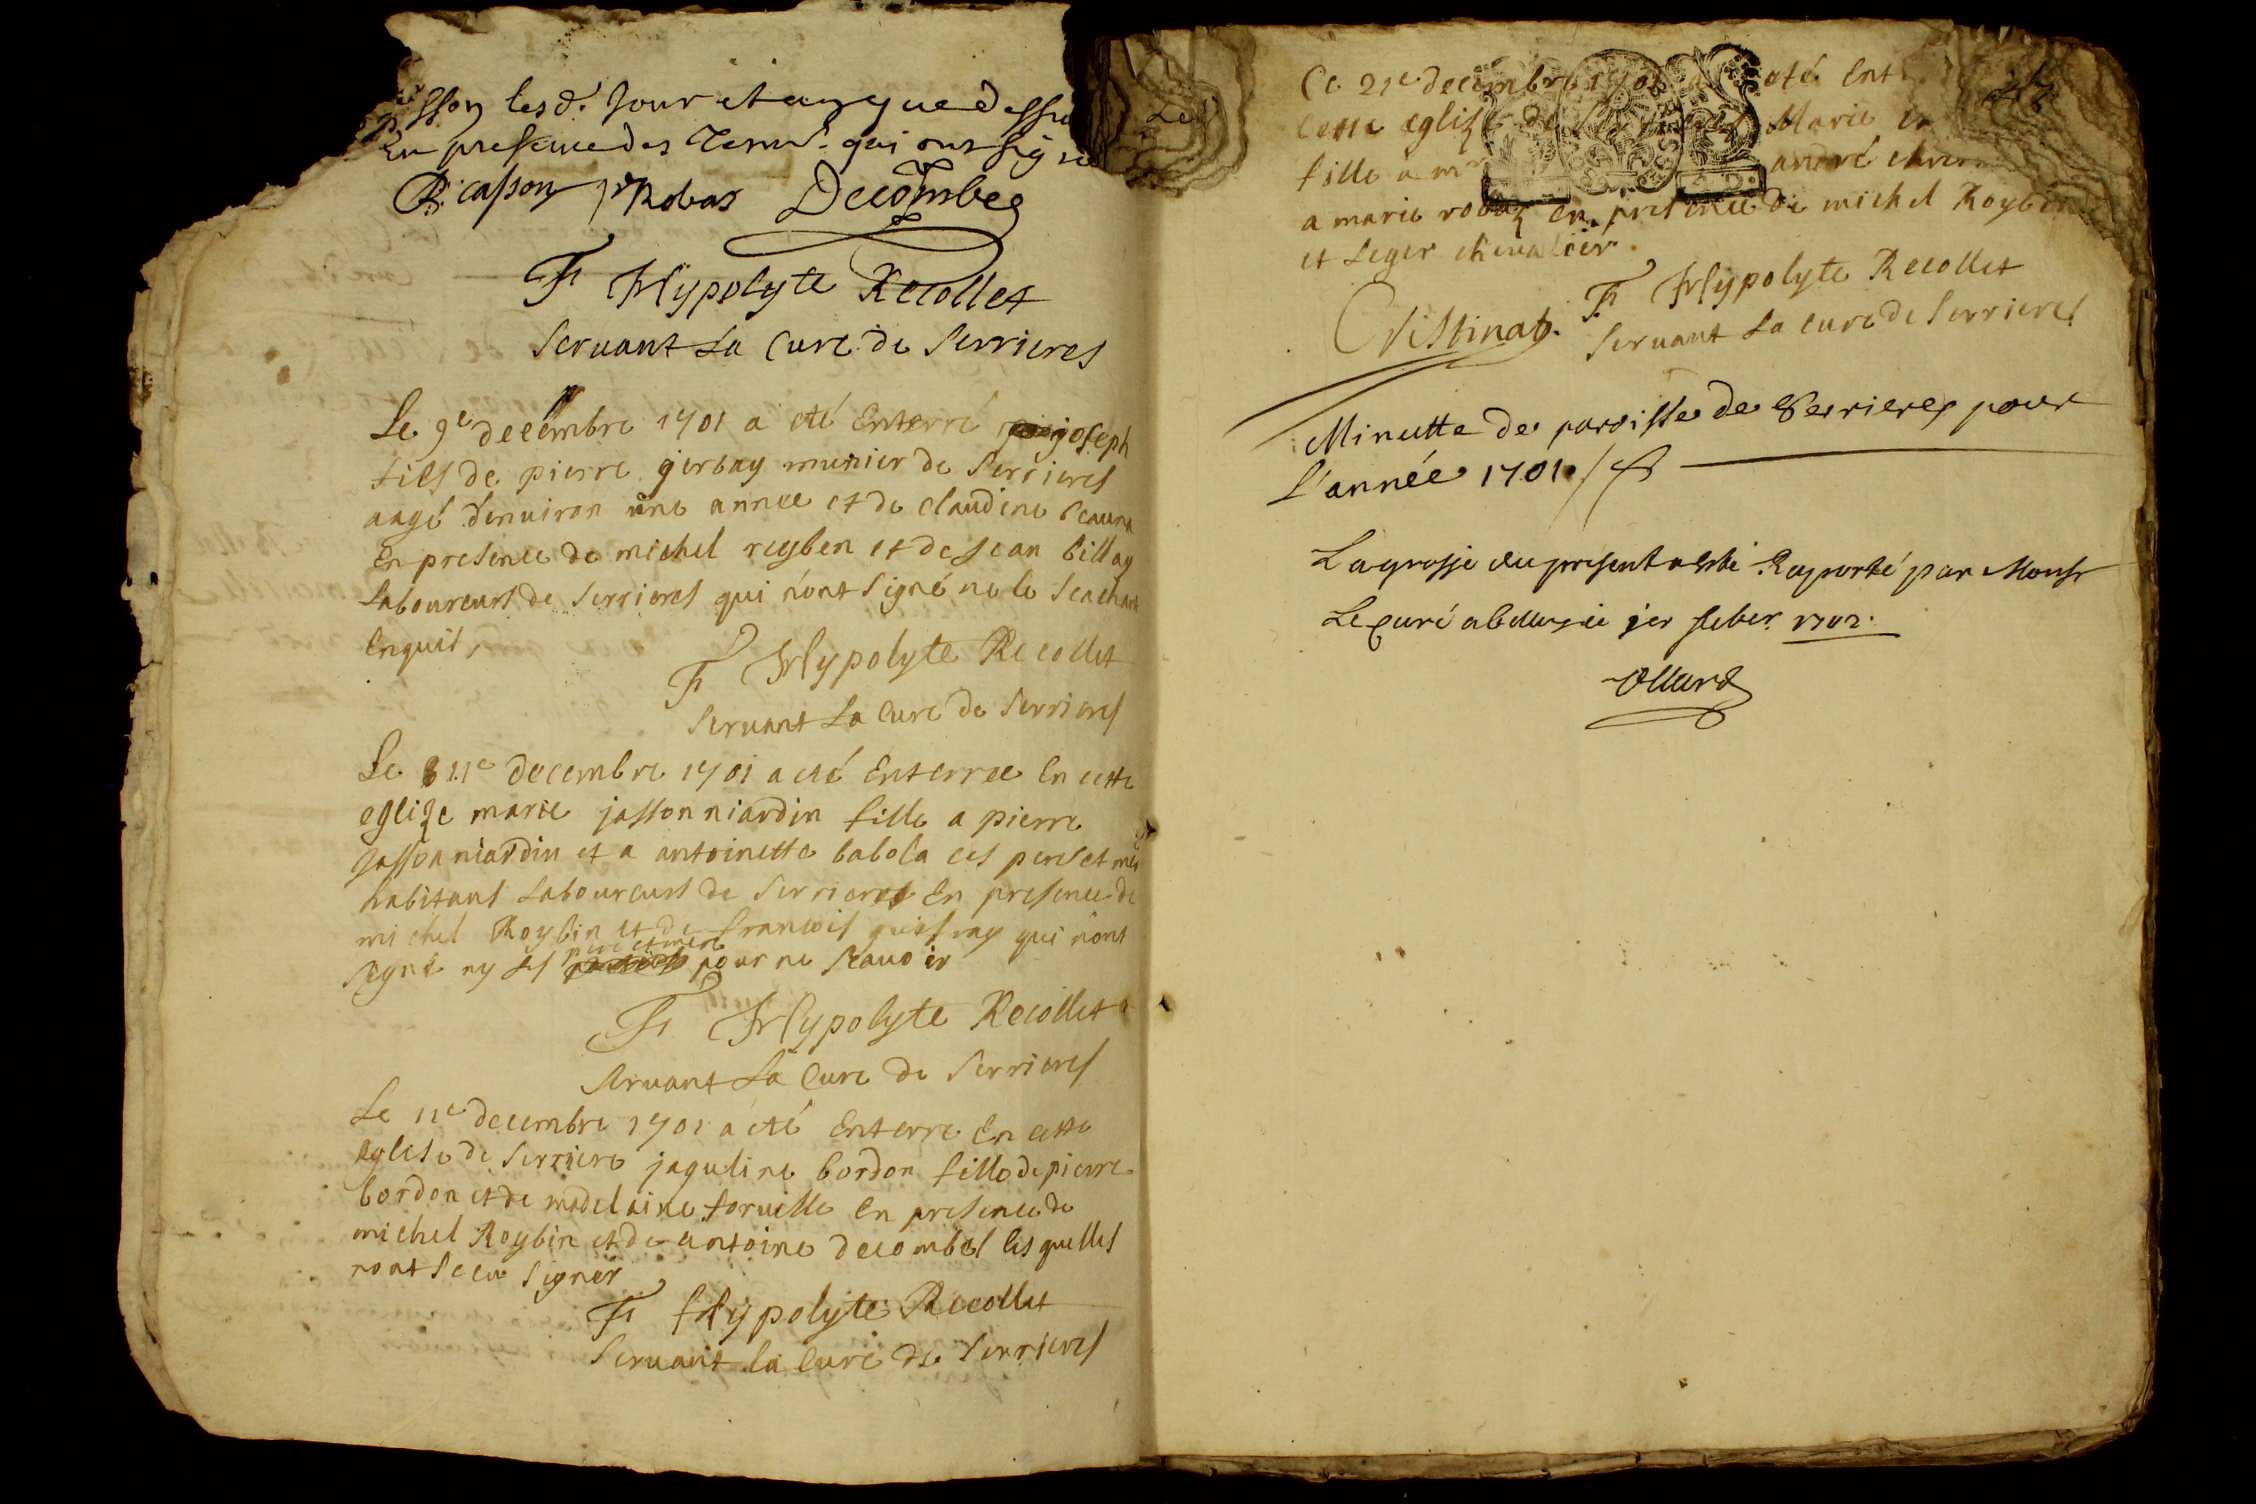 sson lesd. Jour et an que dessu
En presence des temo. qui ont signé
B. casson Robas Decombes
F Hypolyte Recollet
Servant La Cure de Serrieres
Le 9e decembre 1701 a eté Enterré joseph
fils de pierre gerbay munier de Serrieres
aagé d'environ une annee et de claudine
En presence de michel reyben et de Jean billay
Laboureurs de Serrieres qui n'ont signé ne le scachant
Enquis,
F Hypolyte Recollet
Servant La Cure de Serrieres
Le 11e decembre 1701 a eté Enterree En cette
eglize marie jassonniardin fille a pierre
Jassonniardin et a antoinette babola ces peres et me
habitans Laboureurs de Serrieres En presence de
michel Roybin et de francois qui n'ont
signé ny les pere et mere pour ne scavoir
F Hypolyte Recollet
Servant La Cure de Serrieres
Le 11e decembre 1701 a eté Enterre En cette
eglese de Serriere jaquline bordon fille de pierre
bordon et de madelaine forville En presence de
michel Roybin et de antoine decombes lesquelles
nont sceu signer
F Hypolyte Recollet
Servant la Cure de Serrieres
Le
Ce 21e decembre 1701 a eté Ent
Cette eglise de Marie
fille a andré
a marie robaz En presence de michel Roybin
et Leger chevalier
F Hypolyte Recollet
Cristinat. Servant La Cure de Serrieres
Minutte de paroisse de Serrieres pour
l'année 1701
La grosse du present a esté Raporté par Monsr
Le Curé a 1702.
Ollard